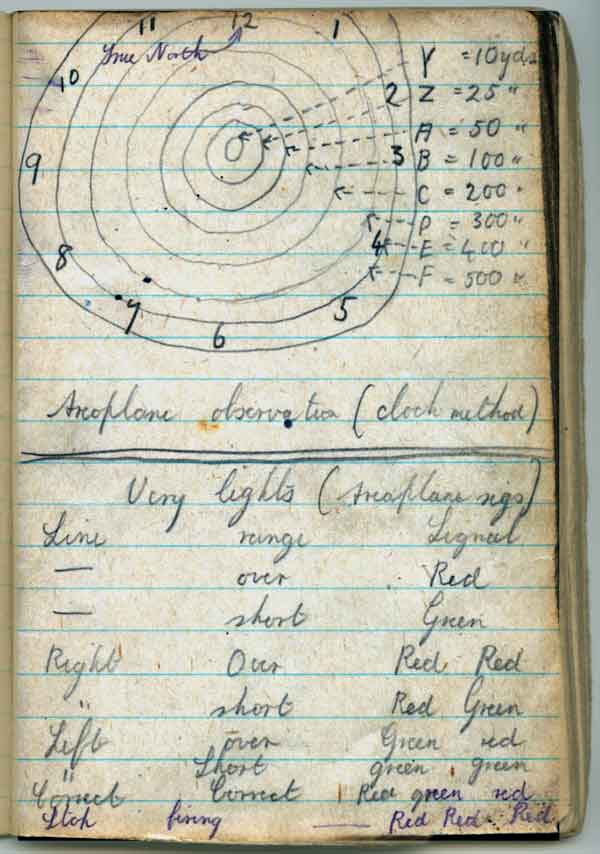 11 12 1
True North
10 2
9 3
8 4
7 5
6
Y = 10 yds
Z = 25 "
A = 50 "
B = 100 "
C = 200 "
D = 300 "
E = 400 "
F = 500 "
Aeroplane observation (clock method)
Very lights (Aeroplane sigs)
Line range Signal
— over Red
— short Green
Right Over Red Red
" short Red Green
Left over Green red
" Short green green
Correct Correct Red green red
firing — Red Red Red